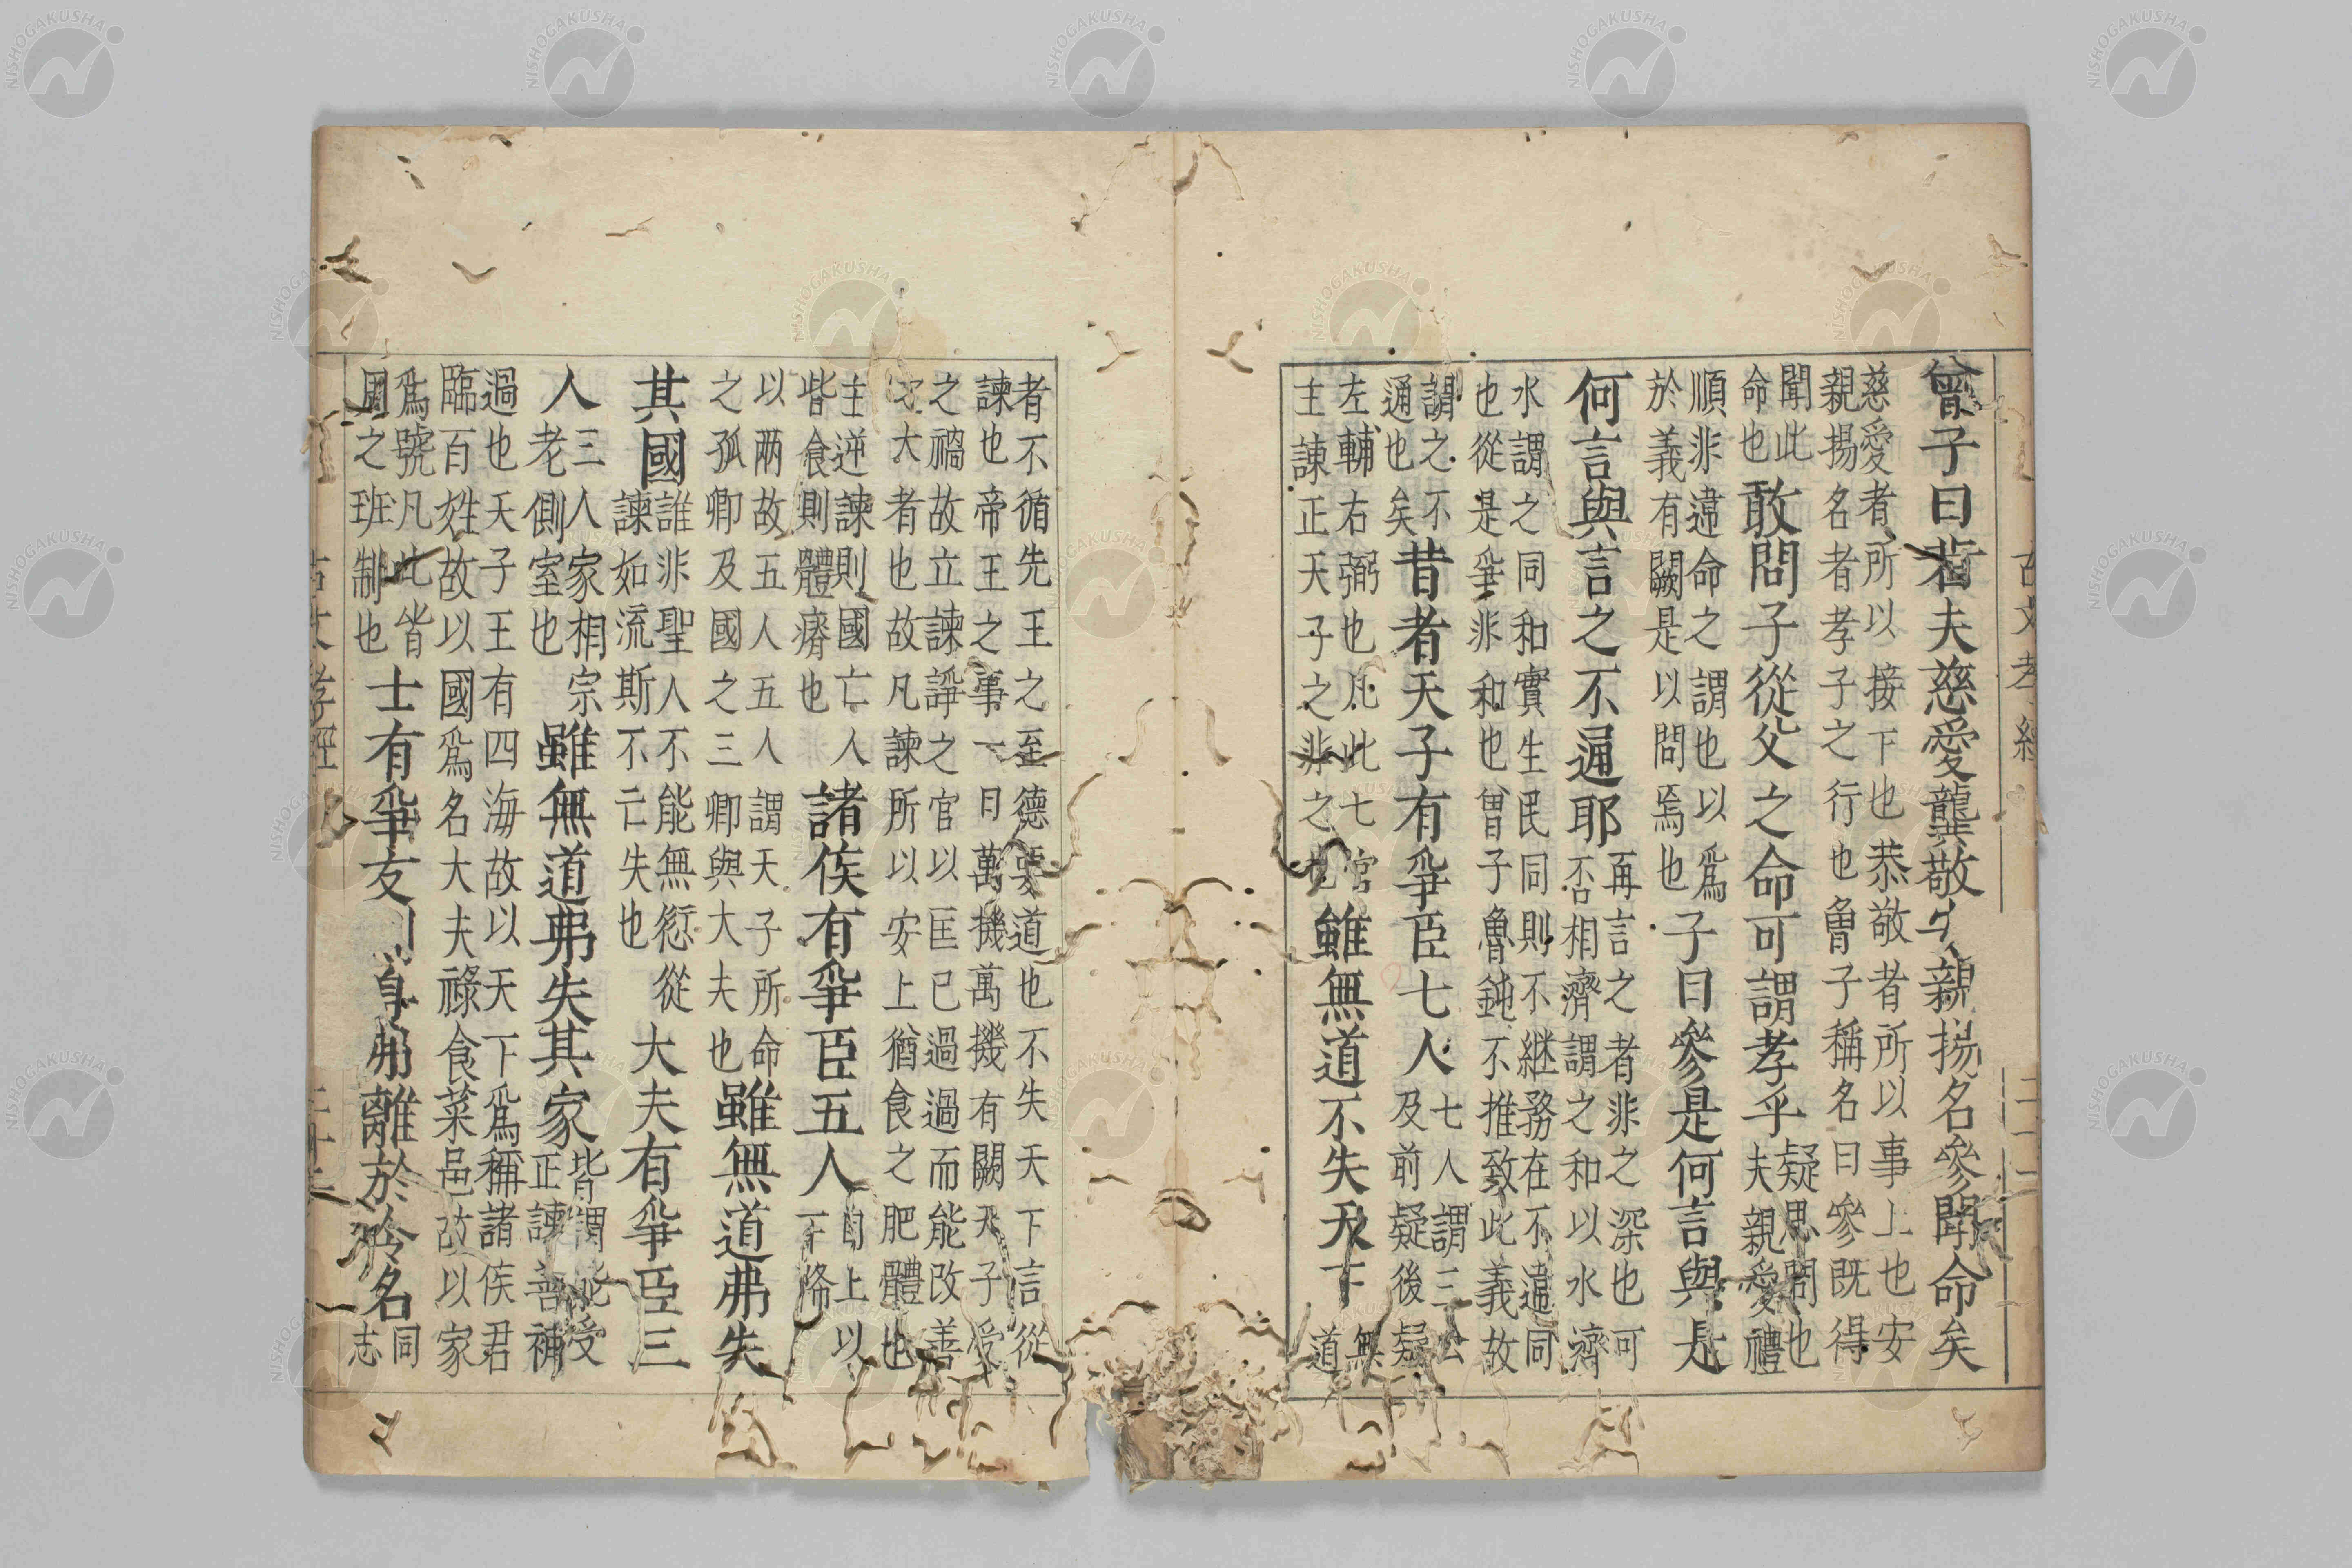 古文孝經
曾子曰若夫慈愛龔敬安親揚名參聞命矣
慈愛者所以接下也恭敬者所以事上也安
親揚名者孝子之行也曾子稱名曰參既得
聞此
命也
敢問子從父之命可謂孝乎
疑思問也
夫親愛禮
順非違命之謂也以爲
於義有闕是以問焉也
子曰參是何言與是
何言與言之不通耶
再言之者非之深也可
否相濟謂之和以水濟
水謂之同和實生民同則不継務在不違同
也從是爭非和也曾子魯鈍不推致此義故
謂之不
通也矣
昔者天子有爭臣七人
七人謂三公
及前疑後疑
左輔右弼也凡此七官
主諫正天子之非之也
雖無道不失天下
無
道
者不循先王之至德要道也不失天下言從
諫也帝王之事一日萬機萬機有闕天子受
之禍故立諫諍之官以匡已過過而能改善
大者也故凡諫所以安上猶食之肥體也
主逆諫則國亡人
呰食則體瘠也
諸侯有爭臣五人
自上以
下降
以两故五人五人謂天子所命
之孤卿及國之三卿與大夫也
雖無道弗失
其國
誰非聖人不能無愆從
諫如流斯不亡失也
大夫有爭臣三
人
三人家相宗
老側室也
雖無道弗失其家
皆謂能受
正諫善補
過也天子王有四海故以天下爲稱諸侯君
臨百姓故以國爲名大夫祿食菜邑故以家
爲號凡此皆
國之班制也
士有爭友身弗離於令名
同
志
古文孝經